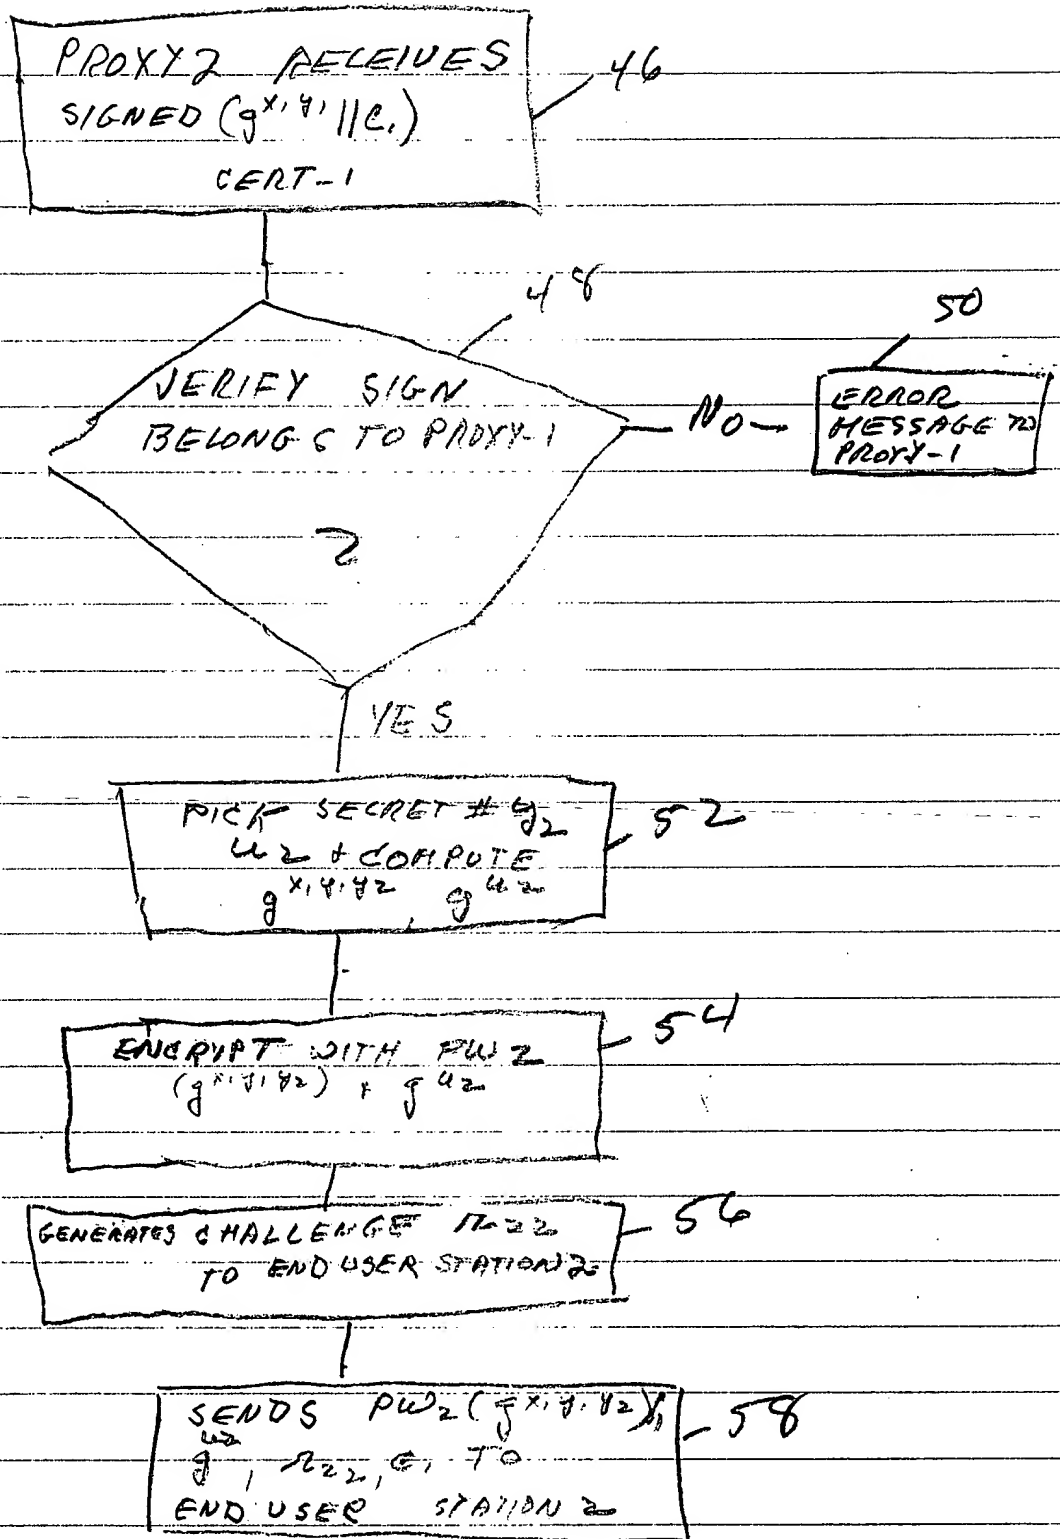 PROXY2 RECEIVES
SIGNED (g^x1y1 || C1)
CERT-1
46
48
VERIFY SIGN
BELONGS TO PROXY-1
?
NO
50
ERROR
MESSAGE TO
PROXY-1
YES
PICK SECRET # y2
u2 + COMPUTE
g^x1y1y2, g^u2
52
ENCRYPT WITH PW2
(g^x1y1y2) + g^u2
54
GENERATES CHALLENGE r22
TO END USER STATION 2
56
SENDS PW2 (g^x1y1y2),
g^u2, r22, C1 TO
END USER STATION 2
58